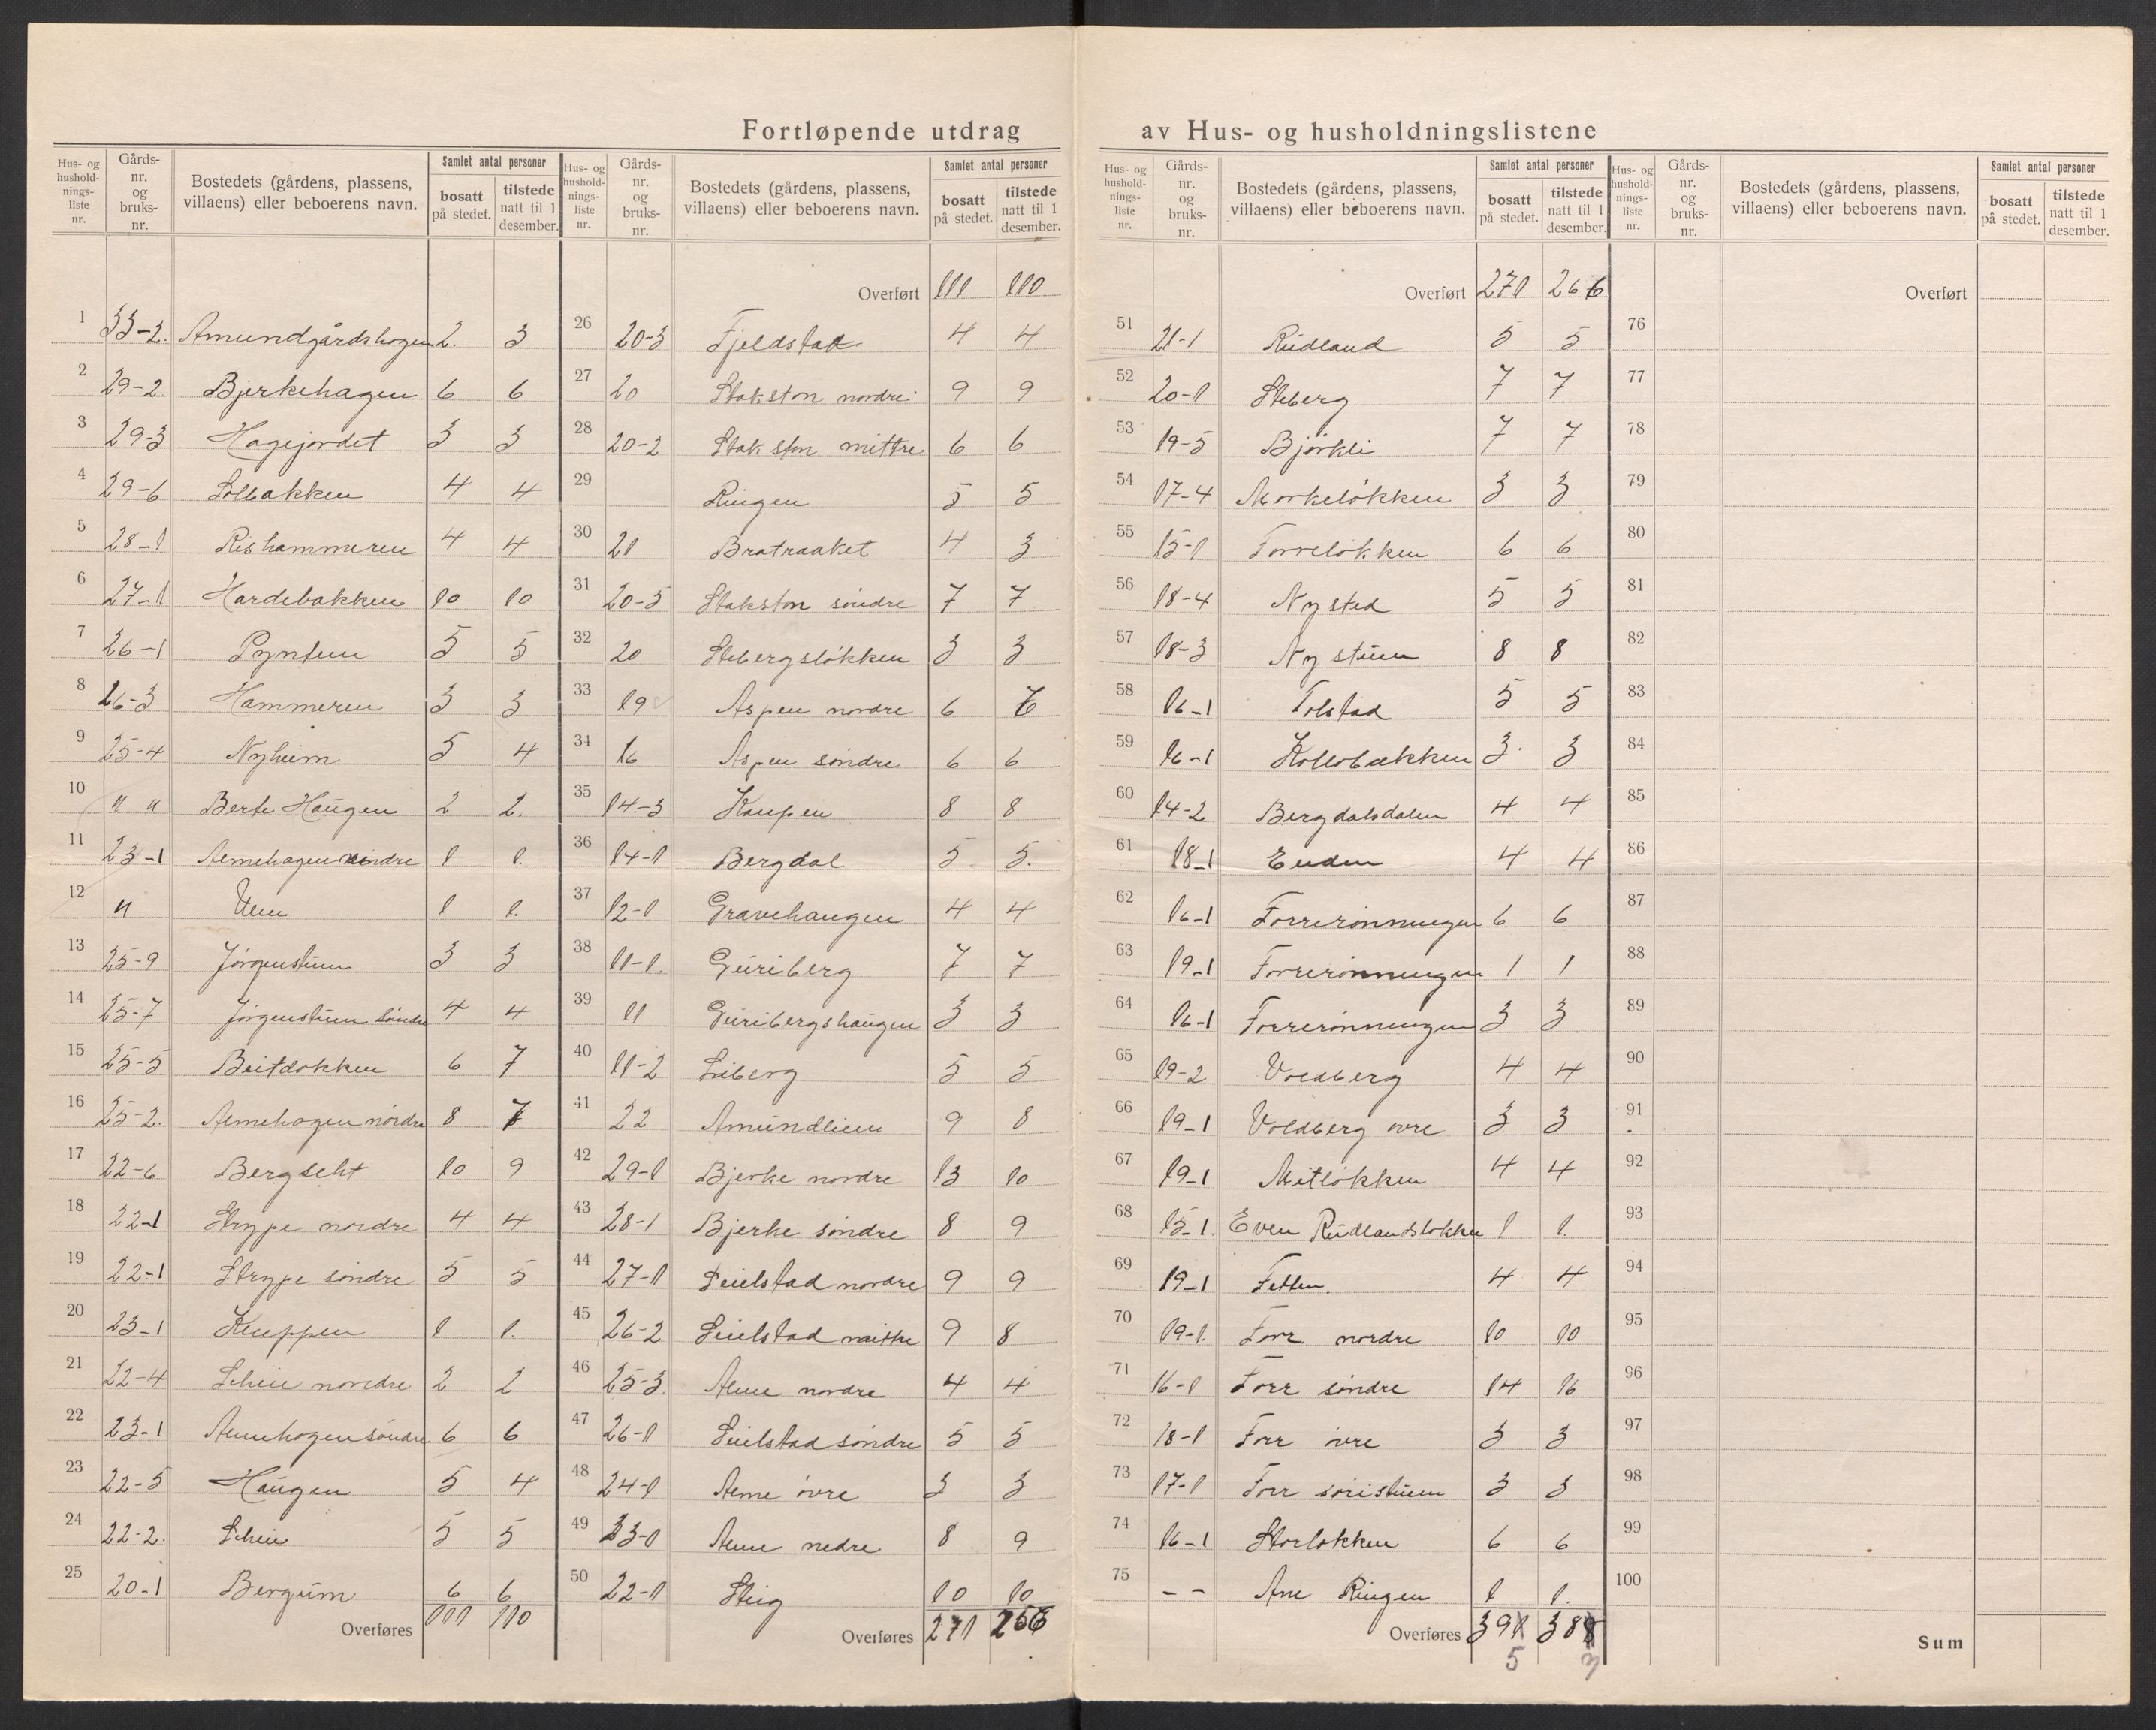 Fortløpende utdrag av Hus- og husholdningslistene
Hus- og husholdningsliste nr. | Gårds- nr. og bruks- nr. | Bostedets (gårdens, plassens, villaens) eller beboerens navn. | Samlet antal personer | bosatt på stedet. | tilstede natt til 1 desember.
1 33-2. Amundgårdshagen 2. 3
2 29-2 Bjerkehagen 6 6
3 29-3 Hagejordet 3 3
4 29-6 Solbakken 4 4
5 28-1 Rishammeren 4 4
6 27-1 Hardebakken 10 10
7 26-1 Pynten 5 5
8 26-3 Hammeren 3 3
9 25-4 Nyheim 5 4
10 " " Berte Haugen 2 2.
11 23-1 Aemehagen nordre 1 1.
12 " 1 1.
13 25-9 Jørgenstuen 3 3
14 25-7 Jørgenstuen søndre 4 4
15 25-5 Beitdokken 6 7
16 25-2. Aemehagen nordre 8 7
17 22-6 Bergseht 10 9
18 22-1 Strype nordre 4 4
19 22-1 Strype søndre 5 5
20 23-1 Kneppen 1 1.
21 22-4 Scheie nordre 2 2
22 23-1 Aemehagen søndre 6 6
23 22-5 Haugen 5 4
24 22-2. Scheie 5 5
25 20-1 Bergum 6 6
Overføres 111 110
Hus- og husholdningsliste nr. | Gårds- nr. og bruks- nr. | Bostedets (gårdens, plassens, villaens) eller beboerens navn. | Samlet antal personer | bosatt på stedet. | tilstede natt til 1 desember.
Overført 111 110
26 20-3 Fjeldstad 4 4
27 20 Stakston nordre 9 9
28 20-2 Stakston mittre 6 6
29 Ringen 5 5
30 21 Bratraaket 4 3
31 20-5 Stakston søndre 7 7
32 20 Stebergsløkken 3 3
33 19 Aspen nordre 6 6
34 16 Aspen søndre 6 6
35 14-3 Kampen 8 8
36 14-1 Bergdal 5. 5.
37 12-1 Gravehaugen 4 4
38 11-1. Guriberg 7 7
39 11 Guribergshaugen 3 3
40 11-2 Liberg 5 5
41 22 Amundlien 9 8
42 29-1 Bjerke nordre 13 10
43 28-1 Bjerke søndre 8 9
44 27-1 Seielstad nordre 9 9
45 26-2 Seielstad mittre 9 8
46 25-3. Aeme nordre 4 4
47 26-1 Seielstad søndre 5 5
48 24-1 Aeme øvre 3 3
49 33-1 Aeme nedre 8 9
50 22-1 Steig 10 10
Overføres 271 266
Hus- og husholdningsliste nr. | Gårds- nr. og bruks- nr. | Bostedets (gårdens, plassens, villaens) eller beboerens navn. | Samlet antal personer | bosatt på stedet. | tilstede natt til 1 desember.
Overført 271 266
51 21-1 Rudland 5 5
52 20-1 Steberg 7 7
53 19-5 Bjørkli 7 7
54 17-4 Mørkeløkken 3 3
55 15-1 Forreløkken 6 6
56 18-4 Nysted 5 5
57 18-3 Nystuen 8 8
58 16-1 Tolstad 5 5
59 16-1 Kollobækken 3. 3
60 14-2 Bergdalsdalen 4 4
61 18-1 Enden 4 4
62 16-1 Forrerønningen 6 6
63 19-1 Forrerønningen 1 1
64 16-1 Forrerønningen 3 3
65 19-2 Voldberg 4 4
66 19-1 Voldberg øvre 3 3
67 19-1 Mitløkken 4 4
68 15-1. Even Rudlandsløkken 1 1.
69 19-1 Fetten. 4 4
70 19-1. Forr nordre 10 10
71 16-1 Forr søndre 14 16
72 18-1 Forr øvre 3 3
73 17-1 Forr søristuen 3 3
74 16-1 Storløkken 6 6
75 - - Ane Ringen 1 1.
Overføres 391 388
5 7
Hus- og husholdningsliste nr. | Gårds- nr. og bruks- nr. | Bostedets (gårdens, plassens, villaens) eller beboerens navn. | Samlet antal personer | bosatt på stedet. | tilstede natt til 1 desember.
Overført
76
77
78
79
80
81
82
83
84
85
86
87
88
89
90
91
92
93
94
95
96
97
98
99
100
Sum